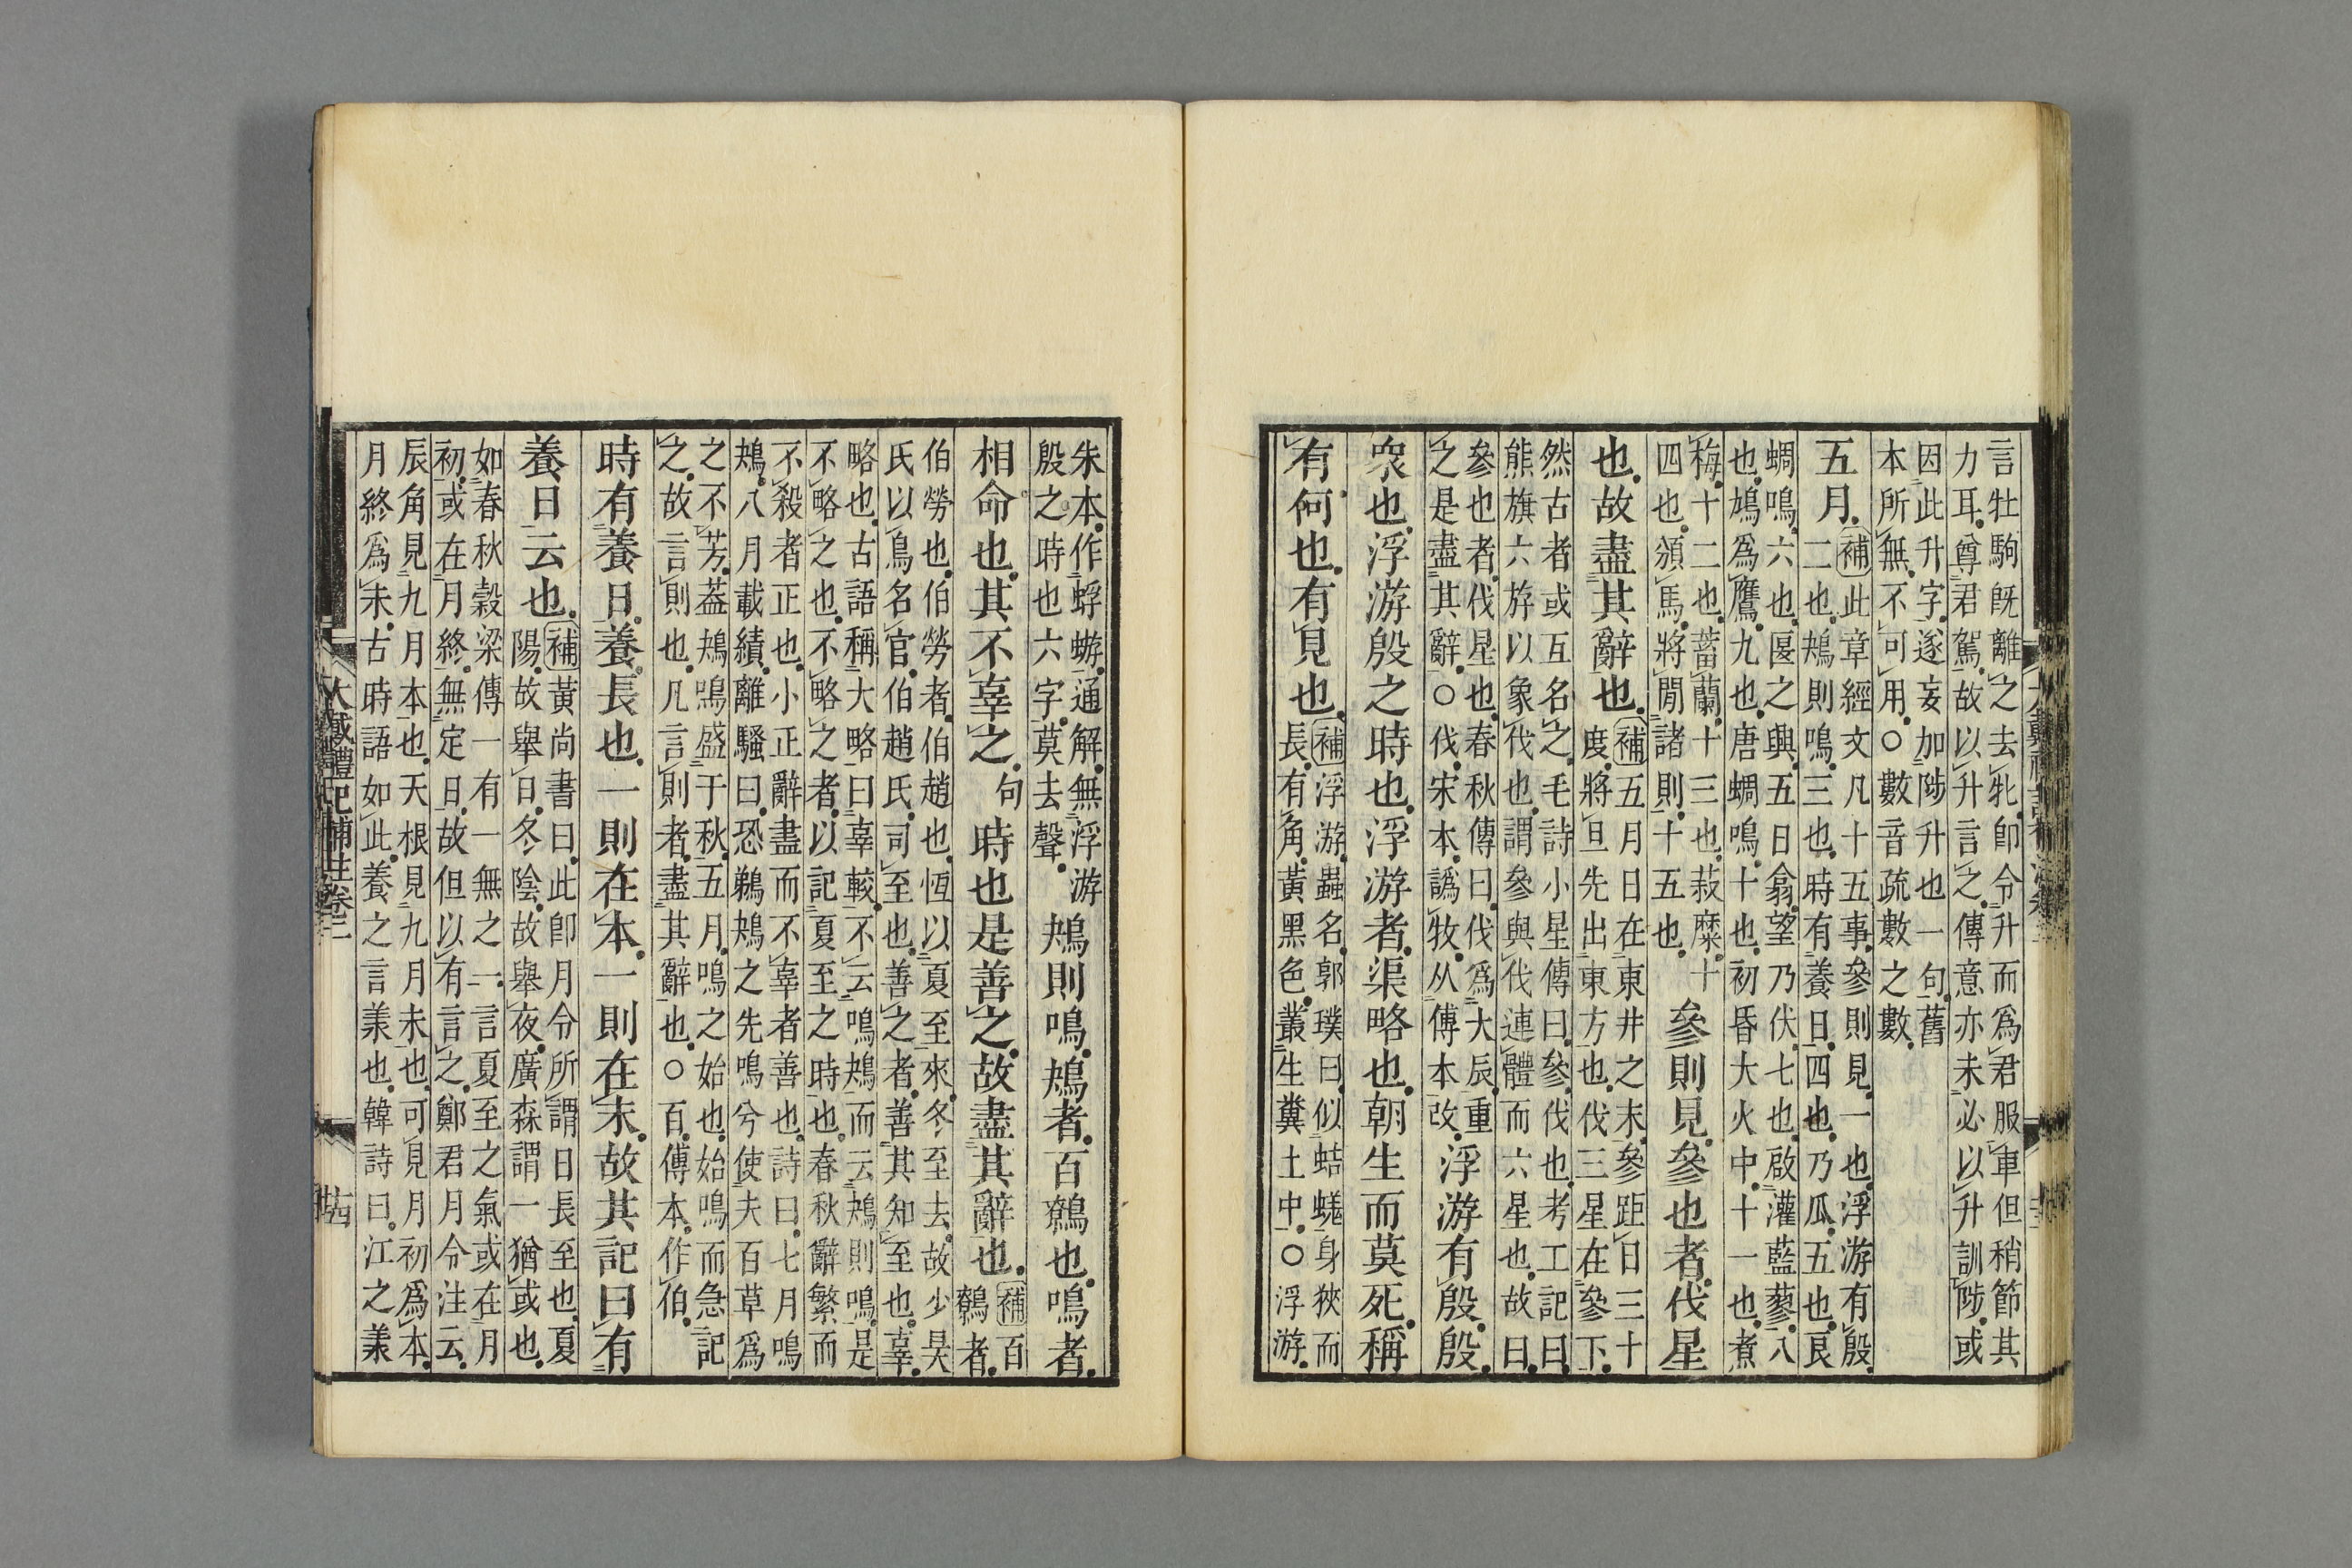 言牡駒旣離之去牝卽令升而爲君服車但稍節其
力耳尊君駕故以升言之傳意亦未必以升訓陟或
因此升字遂妄加陟升也一句舊
本所無不可用○數音疏數之數
五月
補此章經文凡十五事參則見一也浮游有殷
二也鴂則鳴三也時有養日四也乃瓜五也良
蜩鳴六也匽之興五日翕望乃伏七也啟灌藍蓼八
也鳩爲鷹九也唐蜩鳴十也初昏大火中十一也煮
梅十二也蓄蘭十三也菽糜十
四也頒馬將閒諸則十五也
參則見參也者伐星
也故盡其辭也
補五月日在東井之末參距日三十
度將旦先出東方也伐三星在參下
然古者或互名之毛詩小星傳曰參伐也考工記曰
熊旗六斿以象伐也謂參與伐連體而六星也故曰
參也者伐星也春秋傳曰伐爲大辰重
之是盡其辭○伐宋本譌牧从傅本改
浮游有殷殷
衆也浮游殷之時也浮游者渠略也朝生而莫死稱
有何也有見也
補浮游蟲名郭璞曰似蛣蜣身狹而
長有角黃黑色叢生糞土中○浮游
朱本作蜉蝣通解無浮游
殷之時也六字莫去聲
鴂則鳴鴂者百鷯也鳴者
相命也其不辜之
句
時也是善之故盡其辭也
補百
鷯者
伯勞也伯勞者伯趙也恆以夏至來冬至去故少昊
氏以鳥名官伯趙氏司至也善之者善其知至也辜
略也古語稱大略曰辜較不云鳴鴂而云鴂則鳴是
不略之也不略之者以記夏至之時也春秋辭繁而
不殺者正也小正辭盡而不辜者善也詩曰七月鳴
鴂八月載績離騷曰恐鵜鴂之先鳴兮使夫百草爲
之不芳葢鴂鳴盛于秋五月鳴之始也始鳴而急記
之故言則也凡言則者盡其辭也○百傅本作伯
時有養日養長也一則在本一則在末故其記曰有
養日云也
補黃尚書曰此卽月令所謂日長至也夏
陽故舉日冬陰故舉夜廣森謂一猶或也
如春秋穀梁傳一有一無之一言夏至之氣或在月
初或在月終無定日故但以有言之鄭君月令注云
辰角見九月本也天根見九月末也可見月初爲本
月終爲末古時語如此養之言羕也韓詩曰江之羕
大戴禮記補注卷二